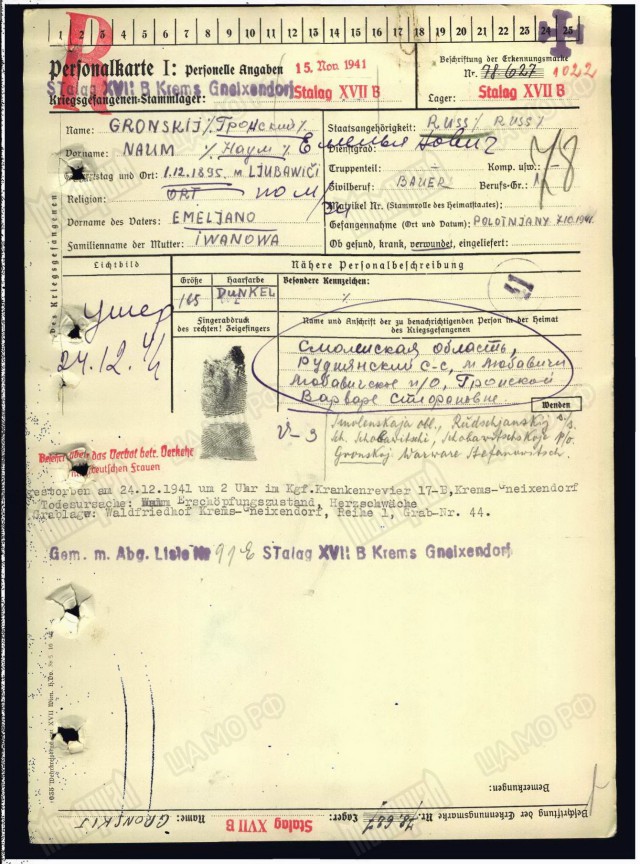 R
1 2 3 4 5 6 7 8 9 10 11 12 13 14 15 16 17 18 19 20 21 22 23 24 25
Personalkarte I: Personelle Angaben
15. Nov 1941
Beschriftung der Erkennungsmarke
Nr. 78627 1022
STalag XVII B Krems Gneixendorf
Kriegsgefangenen-Stammlager: Stalag XVII B
Lager: Stalag XVII B
Des Kriegsgefangenen
Name: GRONSKIJ % Гронский %
Vorname: NAUM % Наум % Емельянович
Geburtstag und Ort: 1.12.1895. м. LJUBAWIČI
Religion: ORT
Vorname des Vaters: EMELJANO
Familienname der Mutter: IWANOWA
Staatsangehörigkeit: RUSS % RUSS %
Dienstgrad:
Truppenteil: Komp. usw.: 78
Zivilberuf: BAUER Berufs-Gr.: 1
Matrikel Nr. (Stammrolle des Heimatstaates)
Gefangennahme (Ort und Datum): POLOTNJANY 7.10.1941
Ob gesund, krank, verwundet, eingeliefert:
Lichtbild
Nähere Personalbeschreibung
Größe Haarfarbe Besondere Kennzeichen:
165 DUNKEL %
Fingerabdruck
des rechten! Zeigefingers
Name und Anschrift der zu benachrichtigenden Person in der Heimat
des Kriegsgefangenen
умер
24.12.41
Смоленская область,
Руднянский с-с, м. Любавичи
Любавичское п/о, Гронской
Варваре
Wenden
V-3
Smolenskaja obl., Rudschjanskij s/s.
Gronskoj Warware Stefanowitsch.
das Verbot betr. Verkehr
deutschen Frauen
estorben am 24.12.1941 um 2 Uhr im Kgf.Krankenrevier 17-B,Krems-Gneixendorf
Todesursache: Erschöpfungszustand, Herzschwäche
Grablage: Waldfriedhof Krems-Gneixendorf, Reihe 1, Grab-Nr. 44.
Gem. m. Abg. Liste Nr 91E STalag XVII B Krems Gneixendorf
Bemerkungen:
Beschriftung der Erkennungsmarke Nr. 78.627 Lager: Stalag XVII B Name: GRONSKIJ
ЦАМО РФ